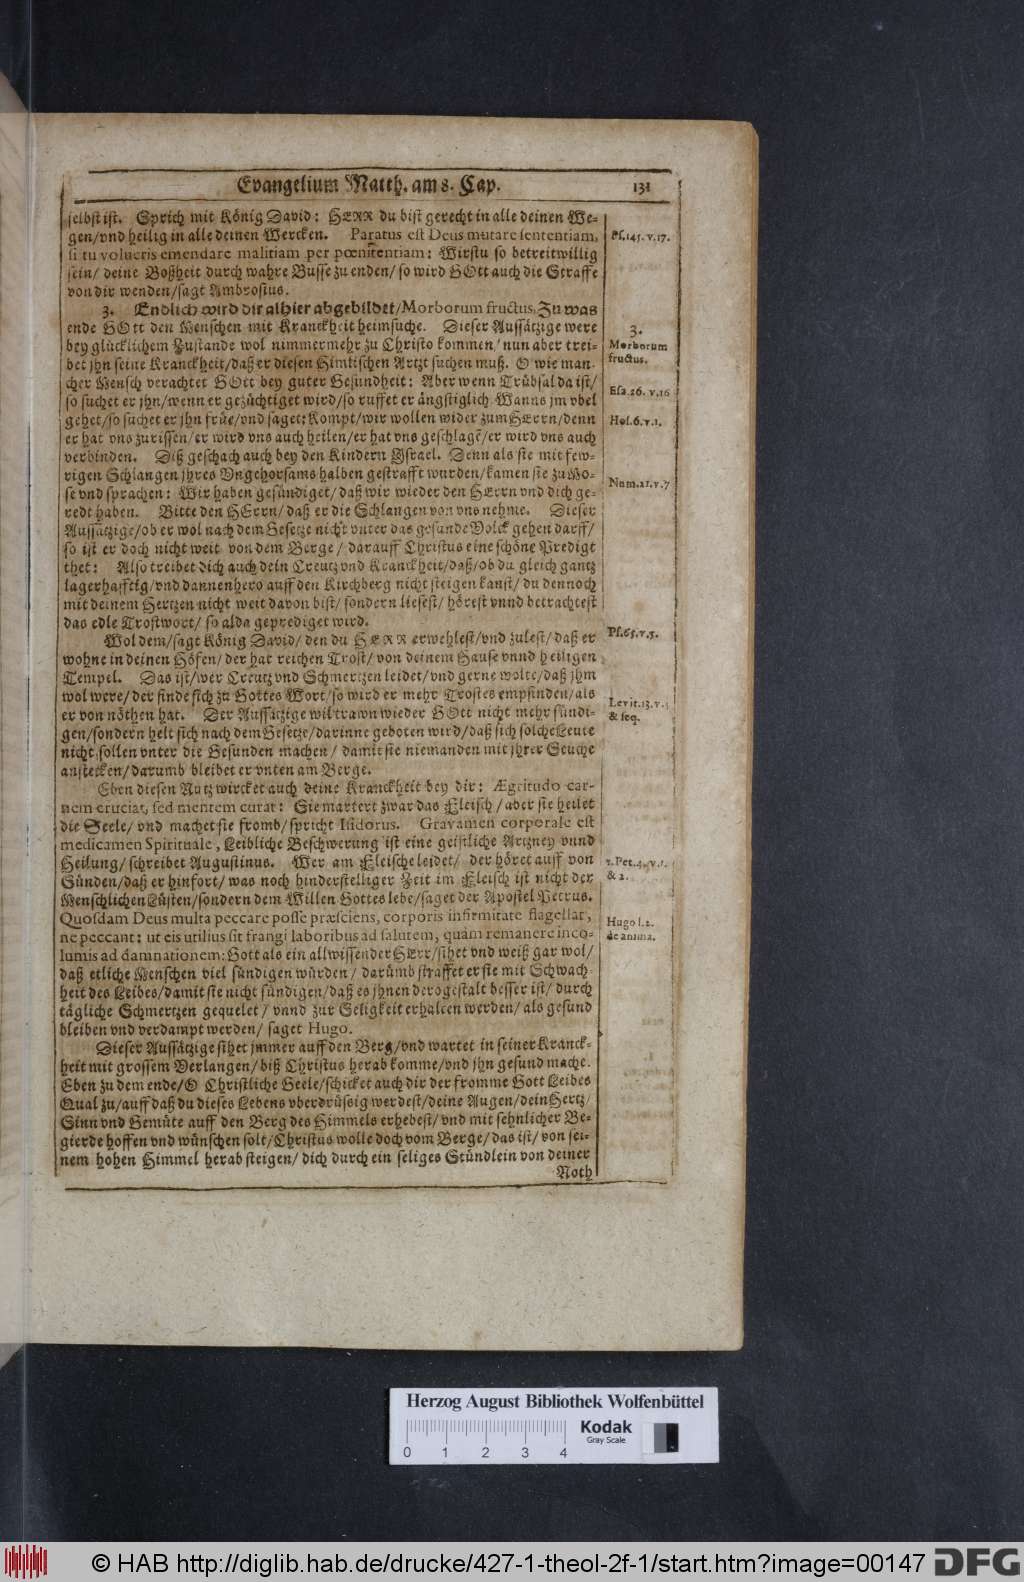 Evangelium Matth. am 8. Cap. 131
selbst ist. Sprich mit König David: HERR du bist gerecht in alle deinen We-
gen/vnd heilig in alle deinen Wercken. Paratus est Deus mutare sententiam,
si tu volueris emendare malitiam per pœnitentiam: Wirstu so bereitwillig
sein/ deine Boßheit durch wahre Busse zu enden/ so wird GOtt auch die Straffe
von dir wenden/sagt Ambrosius.
3. Endlich wird dir alhier abgebildet/Morborum fructus, Zu was
ende GOtt den Menschen mit Kranckheit heimsuche. Dieser Aussätzige were
bey glücklichem Zustande wol nimmermehr zu Christo kommen/ nun aber trei-
bet jhn seine Kranckheit/daß er diesen Himlischen Artzt suchen muß. O wie man-
cher Mensch verachtet GOtt bey guter Gesundheit: Aber wenn Trübsal da ist/
so suchet er jhn/wenn er gezüchtiget wird/so ruffet er ängstiglich. Wanns jm vbel
gehet/so suchet er jhn früe/vnd saget: Kompt/wir wollen wider zum HErrn/denn
er hat vns zurissen/er wird vns auch heilen/er hat vns geschlagẽ/er wird vns auch
verbinden. Diß geschach auch bey den Kindern Israel. Denn als sie mit few-
rigen Schlangen jhres Vngehorsams halben gestrafft wurden/kamen sie zu Mo-
se vnd sprachen: Wir haben gesündiget/ daß wir wieder den HErrn vnd dich ge-
redt haben. Bitte den HErrn/ daß er die Schlangen von vns nehme. Dieser
Aussätzige/ob er wol nach dem Gesetze nicht vnter das gesunde Volck gehen darff/
so ist er doch nicht weit von dem Berge/ darauff Christus eine schöne Predigt
thet: Also treibet dich auch dein Creutz vnd Kranckheit/daß/ob du gleich gantz
lagerhafftig/vnd dannenhero auff den Kirchberg nicht steigen kanst/ du dennoch
mit deinem Hertzen nicht weit davon bist/ sondern liesest/ hörest vnnd betrachtest
das edle Trostwort/ so alda geprediget wird.
Wol dem/sagt König David/ den du HERR erwehlest/vnd zulest/ daß er
wohne in deinen Höfen/ der hat reichen Trost/ von deinem Hause vnnd heiligen
Tempel. Das ist/wer Creutz vnd Schmertzen leidet/vnd gerne wolte/daß jhm
wol were/der finde sich zu Gottes Wort/so wird er mehr Trostes empfinden/als
er von nöthen hat. Der Aussätzige wil trawn wieder GOtt nicht mehr sündi-
gen/sondern helt sich nach dem Gesetze/darinne geboten wird/daß sich solche Leute
nicht sollen vnter die Gesunden machen/ damit sie niemanden mit jhrer Seuche
anstecken/darumb bleibet er vnten am Berge.
Eben diesen Nutz wircket auch deine Kranckheit bey dir: Ægritudo car-
nem cruciat, sed mentem curat: Sie martert zwar das Fleisch/ aber sie heilet
die Seele/ vnd machet sie fromb/spricht Isidorus. Gravamen corporale est
medicamen Spirituale, Leibliche Beschwerung ist eine geistliche Artzney vnnd
Heilung/schreibet Augustinus. Wer am Fleische leidet/ der höret auff von
Sünden/daß er hinfort/ was noch hinderstelliger Zeit im Fleisch ist nicht der
Menschlichen Lüsten/sondern dem Willen Gottes lebe/saget der Apostel Petrus.
Quosdam Deus multa peccare posse præsciens, corporis infirmitate flagellat,
ne peccant: ut eis utilius sit frangi laboribus ad salutem, quàm remanere inco-
lumis ad damnationem: Gott als ein allwissender HErr/sihet vnd weiß gar wol/
daß etliche Menschen viel sündigen würden/ darümb straffet er sie mit Schwach-
heit des Leibes/damit sie nicht sündigen/daß es jhnen derogestalt besser ist/ durch
tägliche Schmertzen gequelet/ vnnd zur Seligkeit erhalten werden/ als gesund
bleiben vnd verdampt werden/ saget Hugo.
Dieser Aussätzige sihet jmmer auff den Berg/vnd wartet in seiner Kranck-
heit mit grossem Verlangen/ biß Christus herab komme/vnd jhn gesund mache.
Eben zu dem ende/O Christliche Seele/schicket auch dir der fromme Gott Leibes
Qual zu/auff daß du dieses Lebens vberdrüssig werdest/deine Augen/dein Hertz/
Sinn vnd Gemüte auff den Berg des Himmels erhebest/ vnd mit sehnlicher Be-
gierde hoffen vnd wünschen solt/Christus wolle doch vom Berge/das ist/ von sei-
nem hohen Himmel herab steigen/ dich durch ein seliges Stündlein von deiner
Noth
Ps.145.v.17.
3.
Morborum
fructus.
Esa.26.v.16
Hos.6.v.1.
Num.21.v.7
Ps.65.v.5.
Levit.13.v.
& seq.
1.Pet.4.v.1.
& 2.
Hugo l.2.
de anima.
Herzog August Bibliothek Wolfenbüttel
Kodak
Gray Scale
0 1 2 3 4
© HAB http://diglib.hab.de/drucke/427-1-theol-2f-1/start.htm?image=00147
DFG